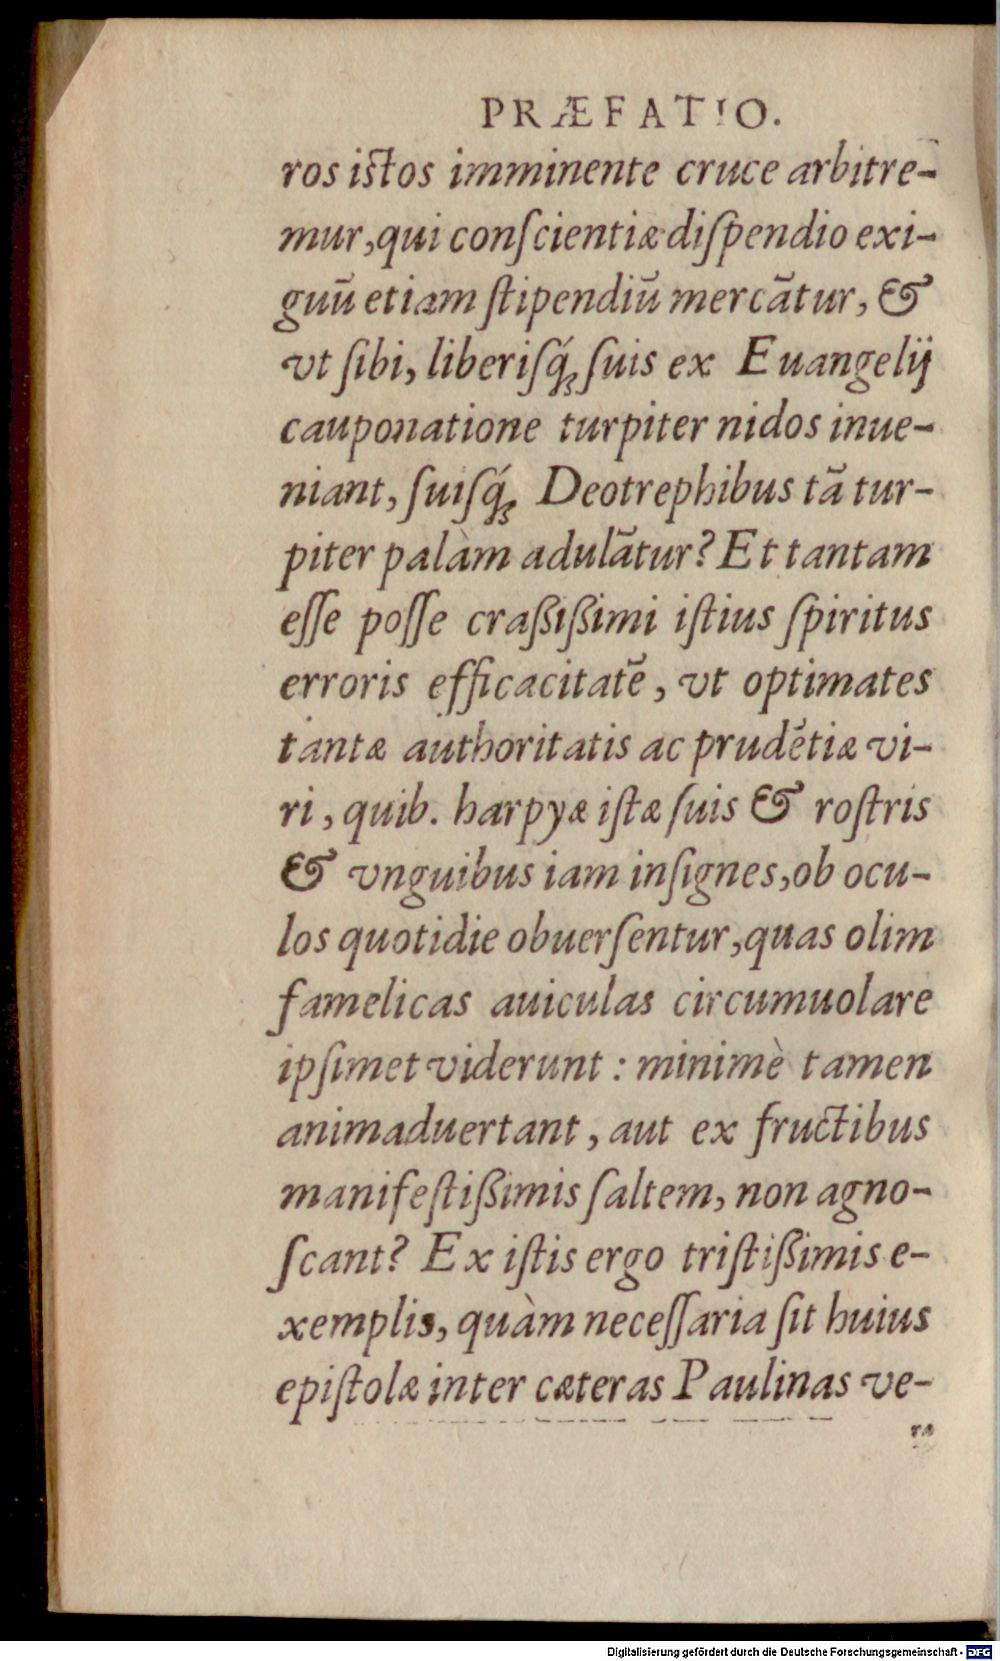 PRÆFATIO.
ros istos imminente cruce arbitre-
mur, qui conſcientiæ diſpendio exi-
guū etiam ſtipendiū mercātur, &
vt ſibi, liberiſq́; ſuis ex Euangelij
cauponatione turpiter nidos inue-
niant, ſuiſq́; Deotrephibus tā tur-
piter palàm adulātur? Et tantam
eſſe poſſe craßißimi iſtius ſpiritus
erroris efficacitatē, vt optimates
tantæ authoritatis ac prudētiæ vi-
ri, quib. harpyæ iſtæ ſuis & roſtris
& vnguibus iam inſignes, ob ocu-
los quotidie obuerſentur, quas olim
famelicas auiculas circumuolare
ipſimet viderunt: minimè tamen
animaduertant, aut ex fructibus
manifeſtißimis ſaltem, non agno-
ſcant? Ex iſtis ergo triſtißimis e-
xemplis, quàm neceſſaria ſit huius
epiſtolæ inter cæteras Paulinas ve-
ra
Digitalisierung gefördert durch die Deutsche Forschungsgemeinschaft - DFG